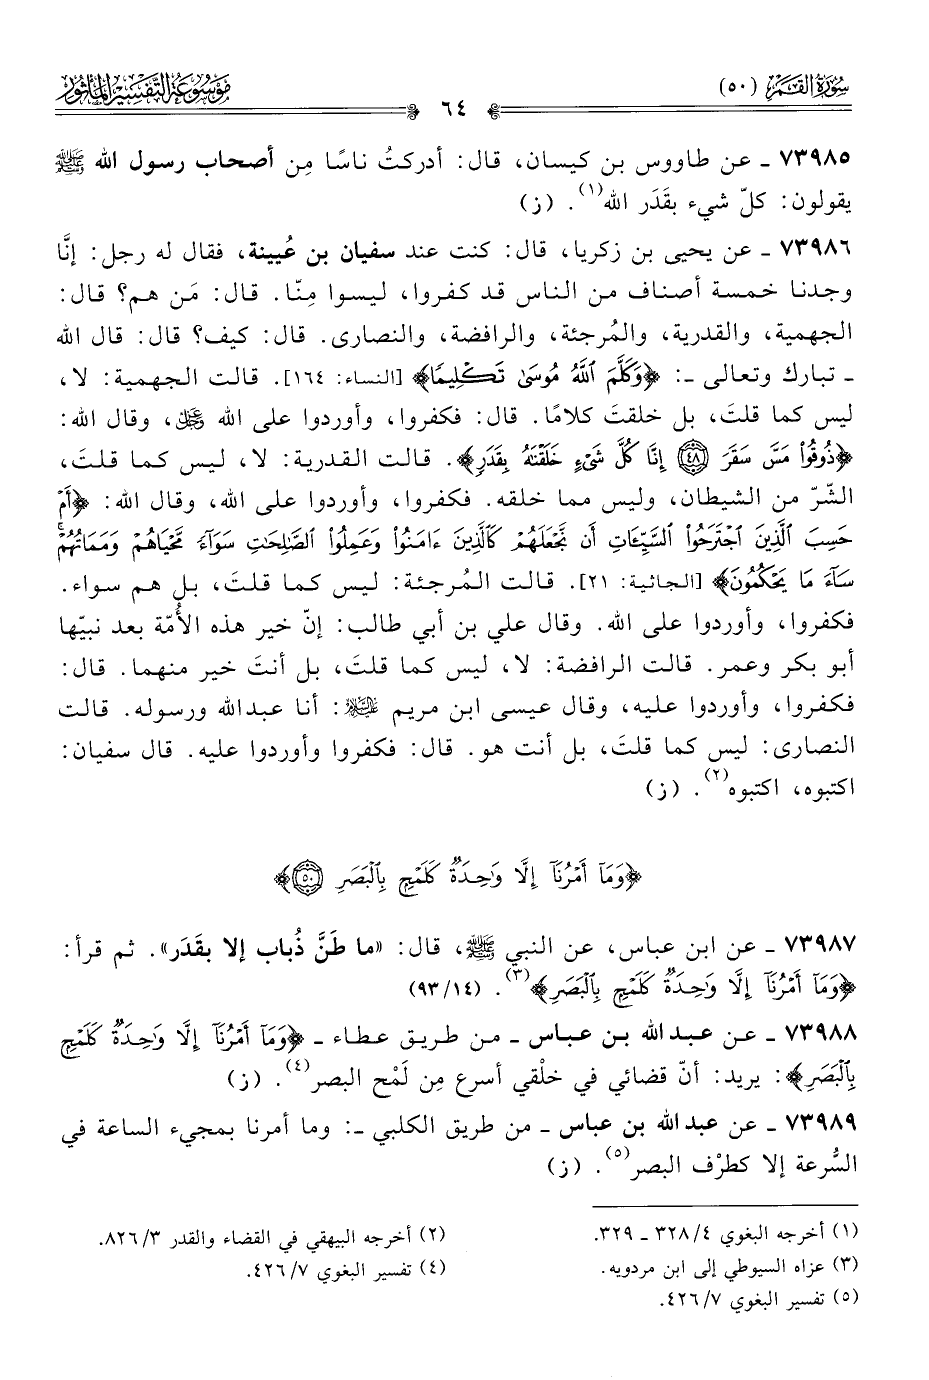 سُورَةُ القَمَر (٥٠)
٦٤
مَوْسُوعَة التَّفْسِير المَأْثُور
٧٣٩٨٥ ـ عن طاووس بن كيسان، قال: أدركتُ ناسًا مِن أصحاب رسول الله ﷺ
يقولون: كلّ شيء بقَدَر الله(١). (ز)
٧٣٩٨٦ ـ عن يحيى بن زكريا، قال: كنت عند سفيان بن عُيينة، فقال له رجل: إنَّا
وجدنا خمسة أصناف من الناس قد كفروا، ليسوا مِنّا. قال: مَن هم؟ قال:
الجهمية، والقدرية، والمُرجئة، والرافضة، والنصارى. قال: كيف؟ قال: قال الله
ـ تبارك وتعالى ـ: ﴿وَكَلَّمَ ٱللَّهُ مُوسَىٰ تَكْلِيمًا﴾ [النساء: ١٦٤]. قالت الجهمية: لا،
ليس كما قلتَ، بل خلقتَ كلامًا. قال: فكفروا، وأوردوا على الله ﷿، وقال الله:
﴿ذُوقُوا۟ مَسَّ سَقَرَ ٤٨ إِنَّا كُلَّ شَىْءٍ خَلَقْنَٰهُ بِقَدَرٍ﴾. قالت القدرية: لا، ليس كما قلتَ،
الشّرّ من الشيطان، وليس مما خلقه. فكفروا، وأوردوا على الله، وقال الله: ﴿أَمْ
حَسِبَ ٱلَّذِينَ ٱجْتَرَحُوا۟ ٱلسَّيِّـَٔاتِ أَن نَّجْعَلَهُمْ كَٱلَّذِينَ ءَامَنُوا۟ وَعَمِلُوا۟ ٱلصَّٰلِحَٰتِ سَوَآءً مَّحْيَاهُمْ وَمَمَاتُهُمْ ۚ
سَآءَ مَا يَحْكُمُونَ﴾ [الجاثية: ٢١]. قالت المُرجئة: ليس كما قلتَ، بل هم سواء.
فكفروا، وأوردوا على الله. وقال علي بن أبي طالب: إنّ خير هذه الأُمّة بعد نبيّها
أبو بكر وعمر. قالت الرافضة: لا، ليس كما قلتَ، بل أنتَ خير منهما. قال:
فكفروا، وأوردوا عليه، وقال عيسى ابن مريم عليه السلام: أنا عبدالله ورسوله. قالت
النصارى: ليس كما قلتَ، بل أنت هو. قال: فكفروا وأوردوا عليه. قال سفيان:
اكتبوه، اكتبوه(٢). (ز)
﴿وَمَآ أَمْرُنَآ إِلَّا وَٰحِدَةٌ كَلَمْحٍۭ بِٱلْبَصَرِ ٥٠﴾
٧٣٩٨٧ ـ عن ابن عباس، عن النبي ﷺ، قال: «ما طَنَّ ذُباب إلا بقَدَر». ثم قرأ:
﴿وَمَآ أَمْرُنَآ إِلَّا وَٰحِدَةٌ كَلَمْحٍۭ بِٱلْبَصَرِ﴾(٣). (٩٣/١٤)
٧٣٩٨٨ ـ عن عبدالله بن عباس ـ من طريق عطاء ـ ﴿وَمَآ أَمْرُنَآ إِلَّا وَٰحِدَةٌ كَلَمْحٍۭ
بِٱلْبَصَرِ﴾: يريد: أنّ قضائي في خلْقي أسرع مِن لَمْح البصر(٤). (ز)
٧٣٩٨٩ ـ عن عبدالله بن عباس ـ من طريق الكلبي ـ: وما أمرنا بمجيء الساعة في
السُّرعة إلا كطرْف البصر(٥). (ز)
(١) أخرجه البغوي ٤/ ٣٢٨ ـ ٣٢٩.
(٢) أخرجه البيهقي في القضاء والقدر ٣/ ٨٢٦.
(٣) عزاه السيوطي إلى ابن مردويه.
(٤) تفسير البغوي ٧/ ٤٢٦.
(٥) تفسير البغوي ٧/ ٤٢٦.